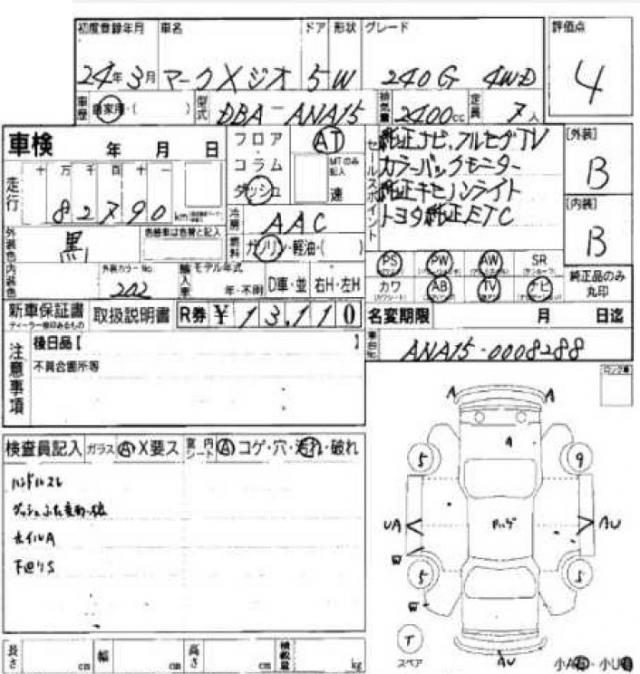 初度登録年月 車名 ドア 形状 グレード 評価点
24年 3月 マークXジオ 5 W 240G 4WD 4
車歴 自家用・( ) 型式 DBA-ANA15 排気量 2400cc 定員 7人
車検 年 月 日
フロア AT
コラム MTのみ記入
ダッシュ 速
セールスポイント
純正ナビ、フルセグTV
カラーバックモニター
純正キセノンライト
トヨタ純正ETC
[外装]
B
[内装]
B
走行 十 万 千 百 十
82790 km
冷房 AAC
燃料 ガソリン・軽油・( )
外装色 黒 色替車は色替と記入
内装色 外装カラーNo. 202
輸入車 モデル年式 年・不明 D車・並 右H・左H
PS PW AW SR
カワ AB TV ナビ
純正品のみ丸印
新車保証書 取扱説明書 R券 ¥13,110
ディーラー捺印あるもの
名変期限 月 日迄
注意事項
後日品【 】
不具合箇所等
車台No. ANA15-0008288
検査員記入 ガラス A X要ス 室内 シート A コゲ・穴・汚れ・破れ
ハンドルスレ
ホイルA
下回りS
A A
A
5 9
UA AU
W
5 5
W
T
スペア
AU
小A 小U
長さ cm 幅 cm 高さ cm 積載量 kg